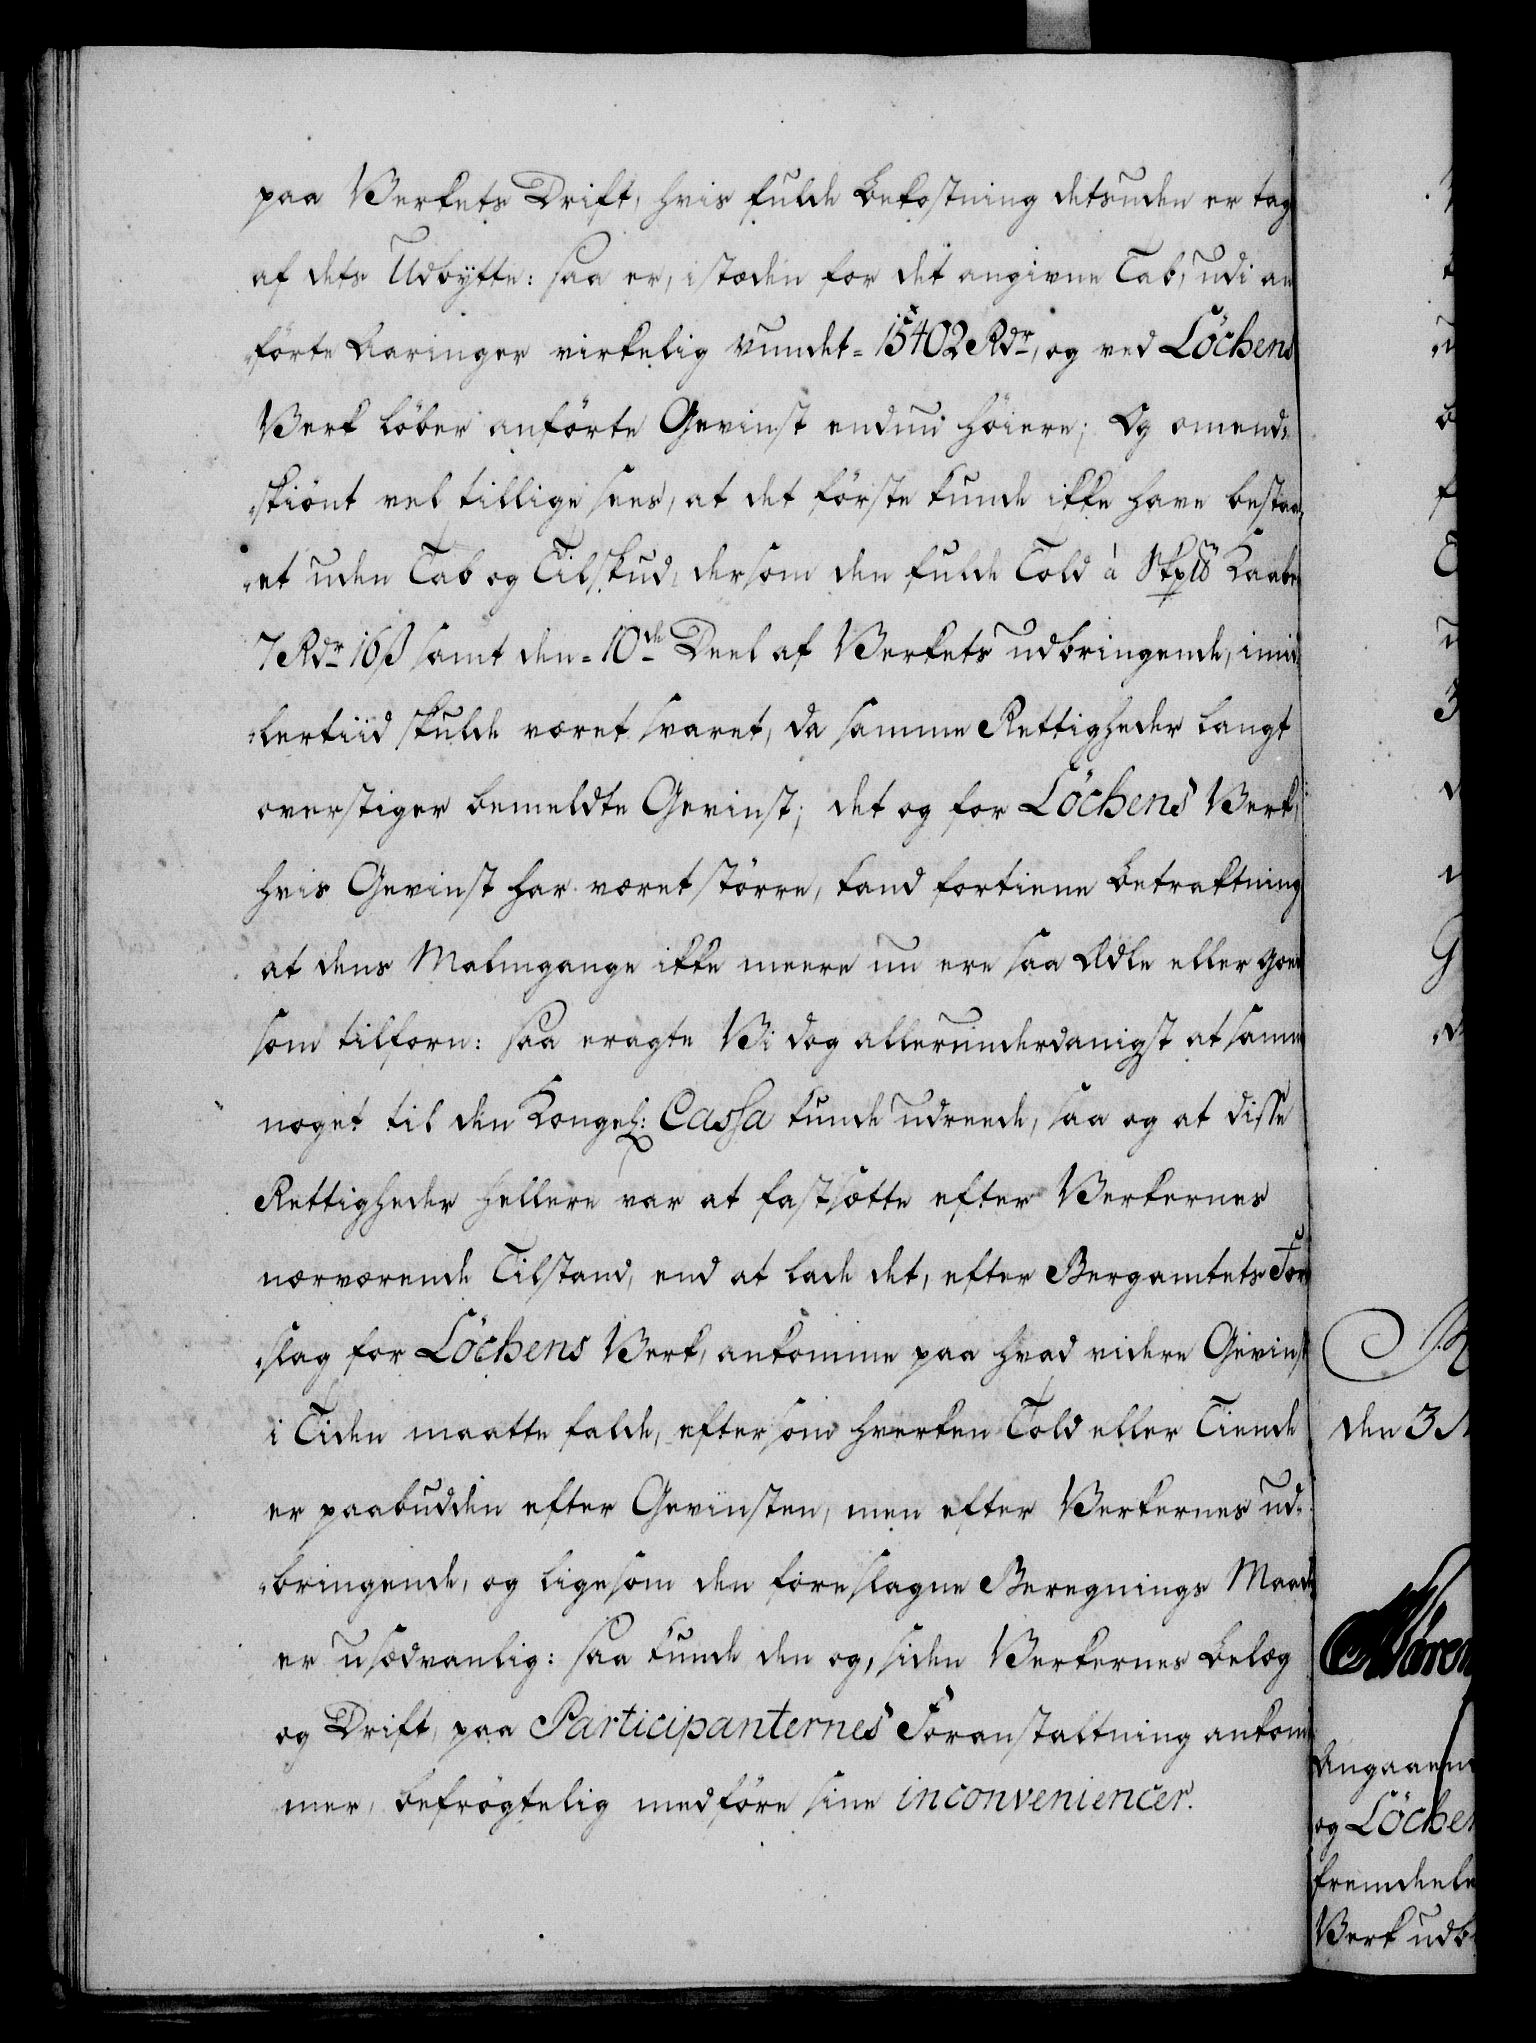 paa Verkets Drift, hvis fulde Bekostning detsuden er tag
af dets Udbytte: saa er, istæden for det angivne Tab, udi an
förte Aaringer virkelig vundet = 15402 Rdr, og ved Löchens
Verk löber anförte Gevinst endnu höiere; Og omend=
=skiönt vel tillige sees, at det förste kunde ikke have bestaa
=et uden Tab og Tilskud, dersom den fulde Told à Skp℔ Kaaber
7 Rdr 16 ß samt den = 10de Deel af Verkets udbringende, imid
=lertiid skulde været svaret, da samme Rettigheder langt
overstiger bemeldte Gevinst; det og for Löchens Verk,
hvis Gevinst har været större, kand fortiene Betraktning
at dens Malmgange ikke meere nu ere saa Ædle eller goe
som tilforn: saa eragte Vi dog allerunderdanigst at samme
noget til den Kongel: Cassa kunde udreede, saa og at disse
Rettigheder hellere var at fastsætte efter Verkernes
nærværende Tilstand, end at lade det, efter Bergamtets For
=slag for Löchens Verk, ankomme paa hvad videre Gevinst
i Tiden maatte falde, eftersom hverken Told eller Tiende
er paabudden efter Gevinsten, men efter Verkernes ud=
=bringende, og ligesom den foreslagne Beregnings Maade
er usædvanlig: saa kunde den og, siden Verkernes Belæg
og Drift, paa Participanternes Foranstaltning ankom
mer, befrögtelig medföre sine inconveniencer.
den 3
Angaaen
og Löchen
fremdeele
Verk udb